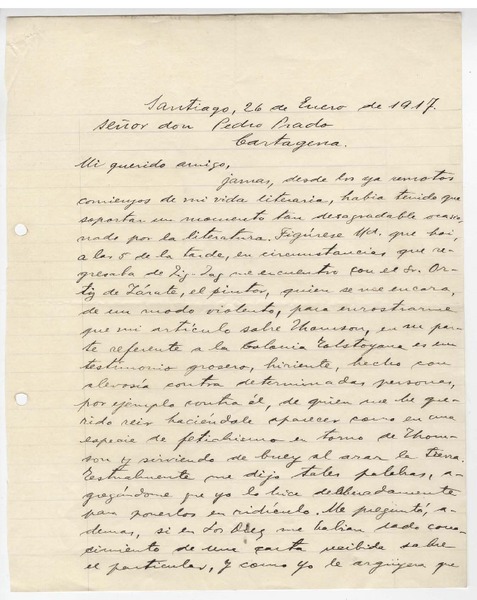 Santiago, 26 de Enero de 1917.
Señor don Pedro Prado
Cartagena.
Mi querido amigo,
jamas, desde los ya remotos
comienzos de mi vida literaria, había tenido que
soportar un momento tan desagradable ocasio-
nado por la literatura. Figúrese Ud. que hoi,
a las 5 de la tarde, en circunstancias que re-
gresaba de Zig-Zag me encuentro con el Sr. Or-
tiz de Zárate, el pintor, quien se me encara,
de un modo violento, para enrostrarme
que mi artículo sobre Thomson, en su par-
te referente a la Colonia Tolstoyana es un
testimonio grosero, hiriente, hecho con
alevosía contra determinadas personas,
por ejemplo contra él, de quien me he que-
rido reir haciéndole aparecer como en una
especie de fetichismo en torno de Thom-
son y sirviendo de buey al arar la tierra.
Testualmente me dijo tales palabras, a-
gregándome que yo lo hice deliberadamente
para ponerlos en ridículo. Me preguntó, a-
demas, si en Los Diez me habían dado cono-
cimiento de una carta recibida sobre
el particular, y como yo le arguyera que